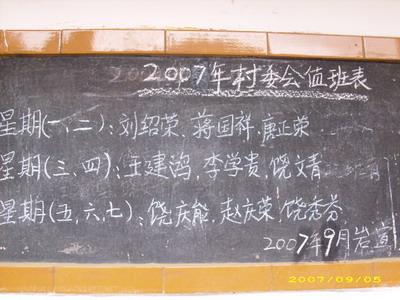 2007年村委会值班表
星期(一、二):刘绍荣、蒋国祥、唐正荣
星期(三、四):王建鸿,李学贵、饶文青
星期(五,六,七):饶庆能,赵庆荣、饶秀芬
2007年9月岩
2007/09/05